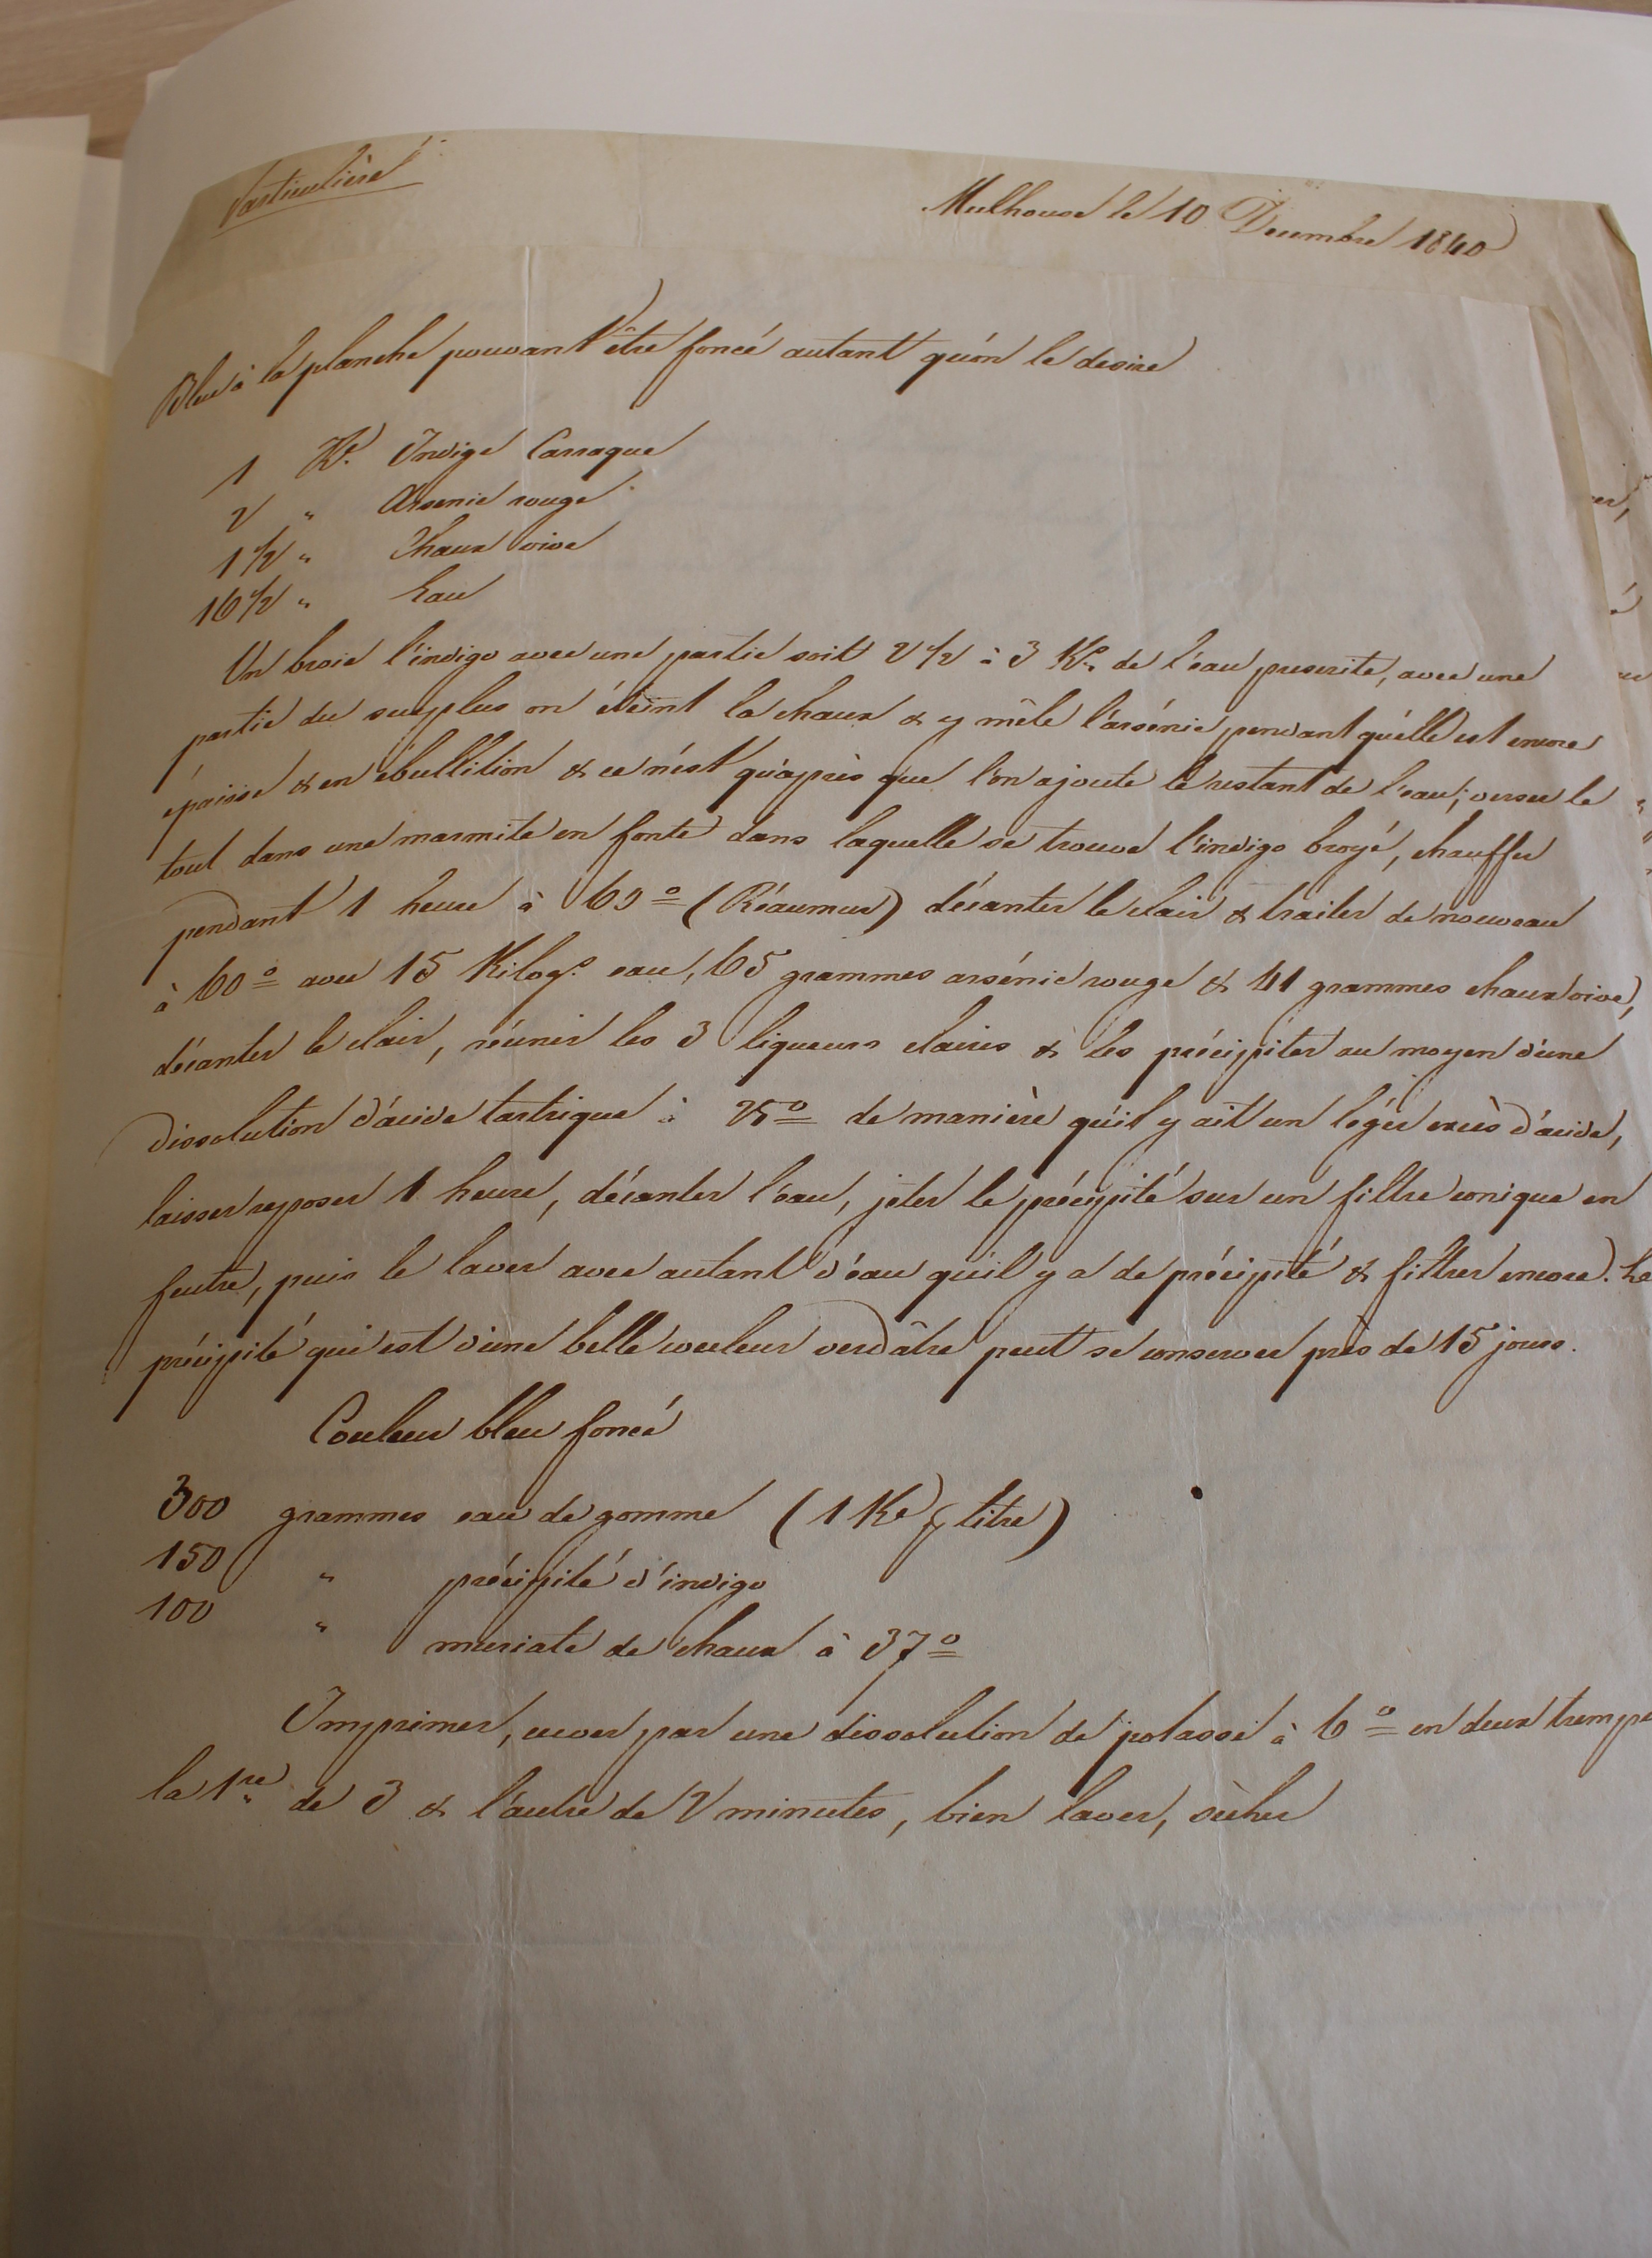 Particulière
Mulhouse le 10 Decembre 1840
Bleu à la planche pouvant être foncé autant qu'on le desire
1 Ko. Indigo Carraque
2 " Arsenic rouge
1 1/2 " Chaux vive
16 1/2 " Eau
On broie l'indigo avec une partie soit 2 1/2 à 3 Ko. de l'eau prescrite, avec une
partie du surplus on éteint la chaux & y mêle l'arsénic pendant qu'elle est encore
épaisse & en ébullition & ce n'est qu'après que l'on ajoute le restant de l'eau; verser le
tout dans une marmite en fonte dans laquelle se trouve l'indigo broyé, chauffer
pendant 1 heure à 60° (Réaumur) décanter le clair & traiter de nouveau
à 60° avec 15 Kilogs eau, 65 grammes arsénic rouge & 41 grammes chaux vive,
décanter le clair, réunir les 3 liqueurs claires & les précipiter au moyen d'une
dissolution d'acide tartrique à 25° de manière qu'il y ait un léger excès d'acide,
laisser reposer 1 heure, décanter l'eau, jeter le précipité sur un filtre conique en
feutre, puis le laver avec autant d'eau qu'il y a de précipité & filtrer encore. Le
précipité qui est d'une belle couleur verdâtre peut se conserver près de 15 jours.
Couleur bleu foncé
300 grammes eau de gomme (1 Ko p litre)
150 " précipité d'indigo
100 " muriate de chaux à 37°
Imprimer, cuver par une dissolution de potasse à 6° en deux trempe
la 1re de 3 & l'autre de 2 minutes, bien laver, sècher